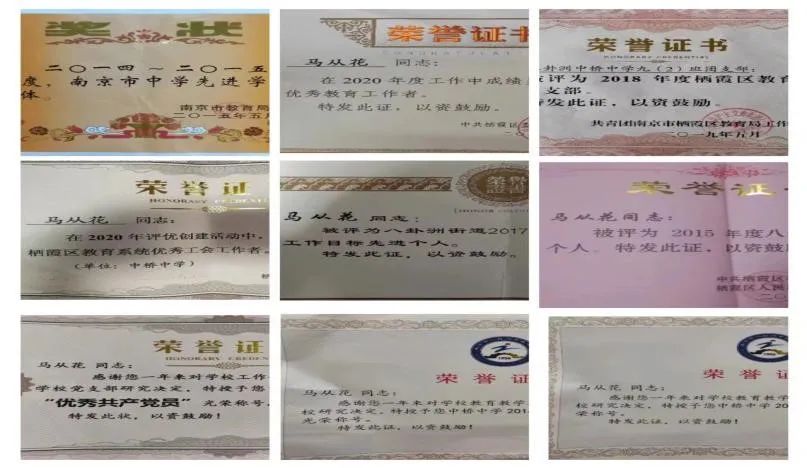 奖状
二〇一四~二〇一五
度，南京市中学先进学
体。
南京市教育局
二〇一五年五月
荣誉证书
马从花 同志：
在2020年度工作中成绩
优秀教育工作者。
特发此证，以资鼓励。
中共栖霞区
荣誉证书
HONORARY CREDENTIAL
卦洲中桥中学九（2）班团支部：
被评为 2018 年度栖霞区教育
支部。
发此证，以资鼓励。
共青团南京市栖霞区教育局工作
二〇一九年五月
荣誉证
HONORARY CREDENT
马从花 同志：
在2020年评优创建活动中，
栖霞区教育系统优秀工会工作者。
（单位：中桥中学）
马从花 同志：
被评为八卦洲街道2017
工作目标先进个人。
特发此证，以资鼓励。
荣誉证
马从花同志：
被评为 2015 年度八
个人。特发此证，以资鼓
中共栖霞区
栖霞区人民
二〇
荣誉证
HONORARY CREDENT
马从花 同志：
感谢您一年来对学校工作
学校党支部研究决定，特授予您
“优秀共产党员”光荣称号。
特发此状，以资鼓励！
荣誉证
马从花 同志：
感谢您一年来对学校教育教学
校研究决定，特授予您中桥中学201
光荣称号。
特发此证，以资鼓励！
荣誉
马从花 同志：
感谢您一年来对学校教育教
校研究决定，特授予您中桥中学2
荣称号。
特发此证，以资鼓励！